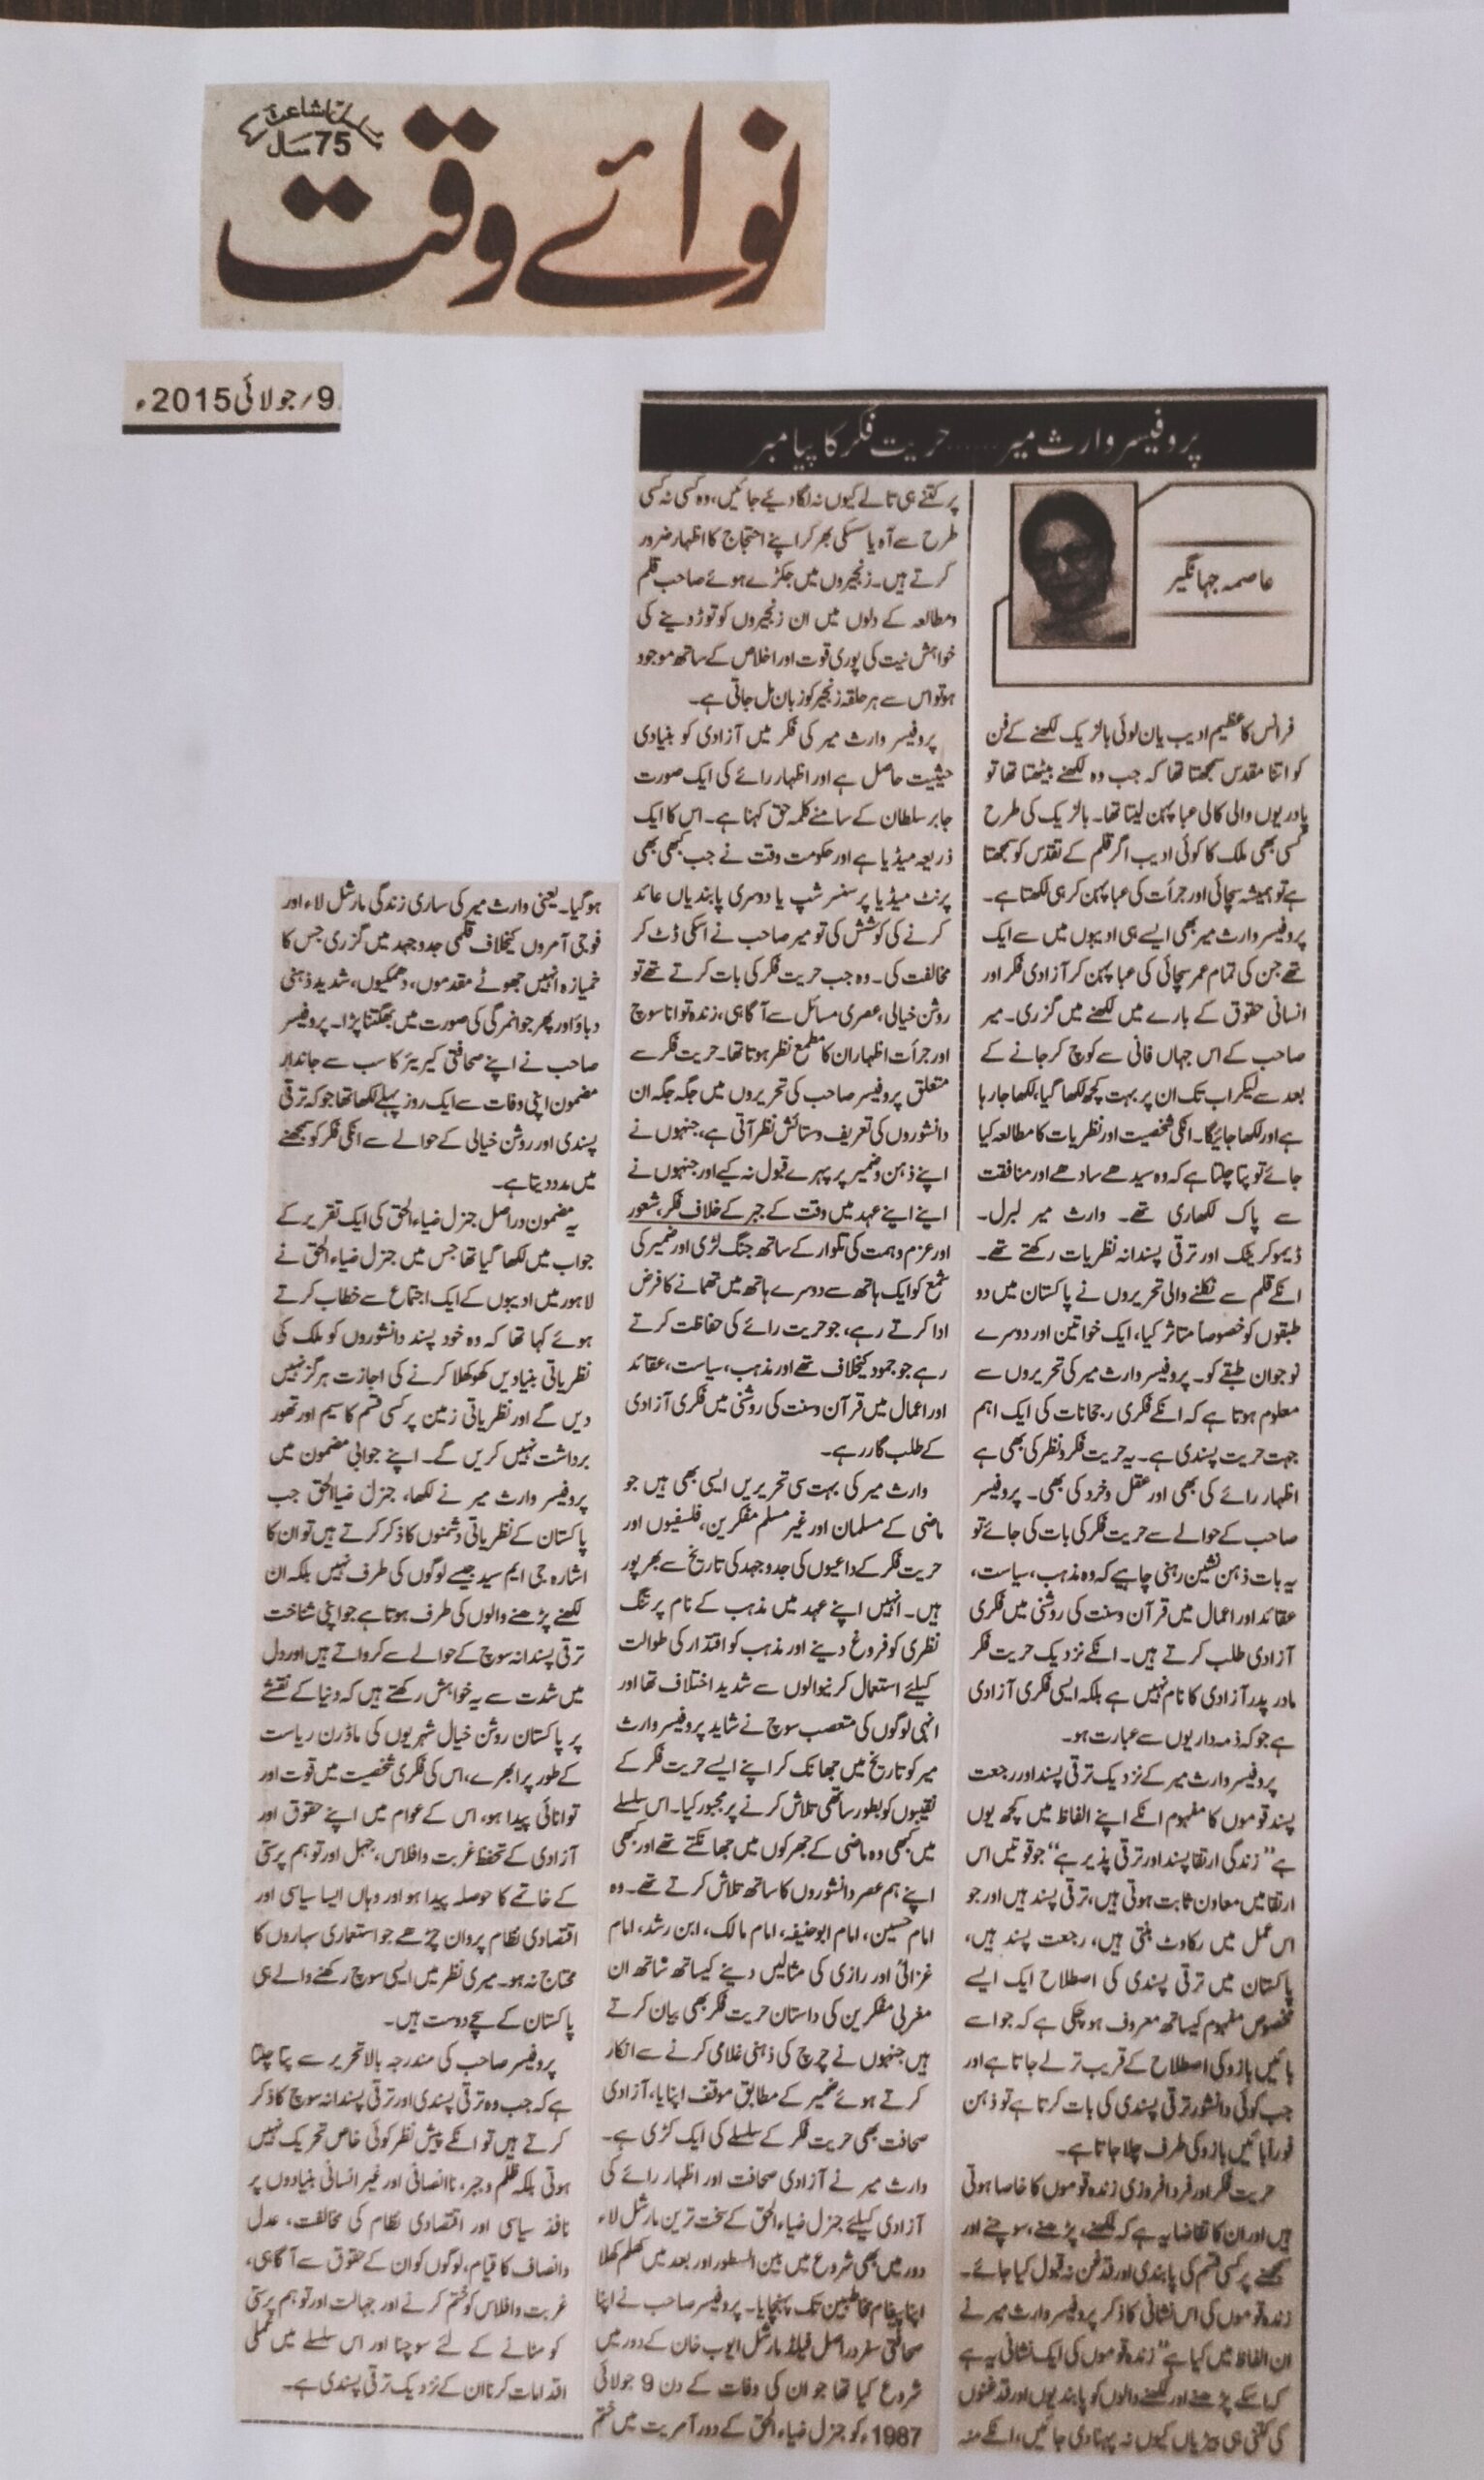 نوائے وقت
مسلسل اشاعت کے
75 سال
9؍جولائی 2015ء
پروفیسر وارث میر......حریت فکر کا پیامبر
عاصمہ جہانگیر
فرانس کا عظیم ادیب یان لوئی بالزیک لکھنے کے فن
کو اتنا مقدس سمجھتا تھا کہ جب وہ لکھنے بیٹھتا تھا تو
پادریوں والی کالی عبا پہن لیتا تھا۔ بالزیک کی طرح
کسی بھی ملک کا کوئی ادیب اگر قلم کے تقدس کو سمجھتا
ہے تو ہمیشہ سچائی اور جرأت کی عبا پہن کر ہی لکھتا ہے۔
پروفیسر وارث میر بھی ایسے ہی ادیبوں میں سے ایک
تھے جن کی تمام عمر سچائی کی عبا پہن کر آزادی فکر اور
انسانی حقوق کے بارے میں لکھنے میں گزری۔ میر
صاحب کے اس جہاں فانی سے کوچ کر جانے کے
بعد سے لیکر اب تک ان پر بہت کچھ لکھا گیا، لکھا جا رہا
ہے اور لکھا جائیگا۔ انکی شخصیت اور نظریات کا مطالعہ کیا
جائے تو پتا چلتا ہے کہ وہ سیدھے سادھے اور منافقت
سے پاک لکھاری تھے۔ وارث میر لبرل۔
ڈیموکریٹک اور ترقی پسندانہ نظریات رکھتے تھے۔
انکے قلم سے نکلنے والی تحریروں نے پاکستان میں دو
طبقوں کو خصوصاً متاثر کیا، ایک خواتین اور دوسرے
نوجوان طبقے کو۔ پروفیسر وارث میر کی تحریروں سے
معلوم ہوتا ہے کہ انکے فکری رجحانات کی ایک اہم
جہت حریت پسندی ہے۔ یہ حریت فکر و نظر کی بھی ہے
اظہار رائے کی بھی اور عقل و خرد کی بھی۔ پروفیسر
صاحب کے حوالے سے حریت فکر کی بات کی جائے تو
یہ بات ذہن نشین رہنی چاہیے کہ وہ مذہب، سیاست،
عقائد اور اعمال میں قرآن و سنت کی روشنی میں فکری
آزادی طلب کرتے ہیں۔ انکے نزدیک حریت فکر
مادر پدر آزادی کا نام نہیں ہے بلکہ ایسی فکری آزادی
ہے جو کہ ذمہ داریوں سے عبارت ہو۔
پروفیسر وارث میر کے نزدیک ترقی پسند اور رجعت
پسند قوموں کا مفہوم انکے اپنے الفاظ میں کچھ یوں
ہے ”زندگی ارتقا پسند اور ترقی پذیر ہے“ جو قوتیں اس
ارتقا میں معاون ثابت ہوتی ہیں، ترقی پسند ہیں اور جو
اس عمل میں رکاوٹ بنتی ہیں، رجعت پسند ہیں،
پاکستان میں ترقی پسندی کی اصطلاح ایک ایسے
مخصوص مفہوم کیساتھ معروف ہو چکی ہے کہ جو اسے
بائیں بازو کی اصطلاح کے قریب تر لے جاتا ہے اور
جب کوئی دانشور ترقی پسندی کی بات کرتا ہے تو ذہن
فوراً بائیں بازو کی طرف چلا جاتا ہے۔
حریت فکر اور فرد افروزی زندہ قوموں کا خاصا ہوتی
ہیں اور ان کا تقاضا یہ ہے کہ لکھنے، پڑھنے، سوچنے اور
سمجھنے پر کسی قسم کی پابندی اور قدغن نہ قبول کیا جائے۔
زندہ قوموں کی اس نشانی کا ذکر پروفیسر وارث میر نے
ان الفاظ میں کیا ہے ”زندہ قوموں کی ایک نشانی یہ ہے
کہ اسکے پڑھنے اور لکھنے والوں کو پابندیوں اور قدغنوں
کی کتنی ہی بیڑیاں کیوں نہ پہنا دی جائیں، انکے منہ
پر کتنے ہی تالے کیوں نہ لگا دیئے جائیں، وہ کسی نہ کسی
طرح سے آہ یا سسکی بھر کر اپنے احتجاج کا اظہار ضرور
کرتے ہیں۔ زنجیروں میں جکڑے ہوئے صاحب قلم
و مطالعہ کے دلوں میں ان زنجیروں کو توڑ دینے کی
خواہش نیت کی پوری قوت اور اخلاص کے ساتھ موجود
ہو تو اس سے ہر حلقہ زنجیر کو زبان مل جاتی ہے۔
پروفیسر وارث میر کی فکر میں آزادی کو بنیادی
حیثیت حاصل ہے اور اظہار رائے کی ایک صورت
جابر سلطان کے سامنے کلمہ حق کہنا ہے۔ اس کا ایک
ذریعہ میڈیا ہے اور حکومت وقت نے جب کبھی بھی
پرنٹ میڈیا پر سنسر شپ یا دوسری پابندیاں عائد
کرنے کی کوشش کی تو میر صاحب نے اسکی ڈٹ کر
مخالفت کی۔ وہ جب حریت فکر کی بات کرتے تھے تو
روشن خیالی، عصری مسائل سے آگاہی، زندہ توانا سوچ
اور جرأت اظہار ان کا مطمع نظر ہوتا تھا۔ حریت فکر سے
متعلق پروفیسر صاحب کی تحریروں میں جگہ جگہ ان
دانشوروں کی تعریف و ستائش نظر آتی ہے، جنہوں نے
اپنے ذہن و ضمیر پر پہرے قبول نہ کیے اور جنہوں نے
اپنے اپنے عہد میں وقت کے جبر کے خلاف فکر، شعور
اور عزم و ہمت کی تلوار کے ساتھ جنگ لڑی اور ضمیر کی
شمع کو ایک ہاتھ سے دوسرے ہاتھ میں تھمانے کا فرض
ادا کرتے رہے، جو حریت رائے کی حفاظت کرتے
رہے جو جمود کیخلاف تھے اور مذہب، سیاست، عقائد
اور اعمال میں قرآن و سنت کی روشنی میں فکری آزادی
کے طلب گار رہے۔
وارث میر کی بہت سی تحریریں ایسی بھی ہیں جو
ماضی کے مسلمان اور غیر مسلم مفکرین، فلسفیوں اور
حریت فکر کے داعیوں کی جدوجہد کی تاریخ سے بھرپور
ہیں۔ انہیں اپنے عہد میں مذہب کے نام پر تنگ
نظری کو فروغ دینے اور مذہب کو اقتدار کی طوالت
کیلئے استعمال کرنیوالوں سے شدید اختلاف تھا اور
انہی لوگوں کی متعصب سوچ نے شاید پروفیسر وارث
میر کو تاریخ میں جھانک کر اپنے ایسے حریت فکر کے
نقیبوں کو بطور ساتھی تلاش کرنے پر مجبور کیا۔ اس سلسلے
میں کبھی وہ ماضی کے جھرکوں میں جھانکتے تھے اور کبھی
اپنے ہم عصر دانشوروں کا ساتھ تلاش کرتے تھے۔ وہ
امام حسین، امام ابوحنیفہ، امام مالک، ابن رشد، امام
غزالیؒ اور رازی کی مثالیں دینے کیساتھ ساتھ ان
مغربی مفکرین کی داستان حریت فکر بھی بیان کرتے
ہیں جنہوں نے چرچ کی ذہنی غلامی کرنے سے انکار
کرتے ہوئے ضمیر کے مطابق موقف اپنایا، آزادی
صحافت بھی حریت فکر کے سلسلے کی ایک کڑی ہے۔
وارث میر نے آزادی صحافت اور اظہار رائے کی
آزادی کیلئے جنرل ضیاء الحق کے سخت ترین مارشل لاء
دور میں بھی شروع میں بین السطور اور بعد میں کھلم کھلا
اپنا پیغام مخاطبین تک پہنچایا۔ پروفیسر صاحب نے اپنا
صحافتی سفر دراصل فیلڈ مارشل ایوب خان کے دور میں
شروع کیا تھا جو ان کی وفات کے دن 9 جولائی
1987ء کو جنرل ضیاء الحق کے دور آمریت میں ختم
ہو گیا۔ یعنی وارث میر کی ساری زندگی مارشل لاء اور
فوجی آمروں کیخلاف قلمی جدوجہد میں گزری جس کا
خمیازہ انہیں جھوٹے مقدموں، دھمکیوں، شدید ذہنی
دباؤ اور پھر جوانمرگی کی صورت میں بھگتنا پڑا۔ پروفیسر
صاحب نے اپنے صحافتی کیریئر کا سب سے جاندار
مضمون اپنی وفات سے ایک روز پہلے لکھا تھا جو کہ ترقی
پسندی اور روشن خیالی کے حوالے سے انکی فکر کو سمجھنے
میں مدد دیتا ہے۔
یہ مضمون دراصل جنرل ضیاء الحق کی ایک تقریر کے
جواب میں لکھا گیا تھا جس میں جنرل ضیاء الحق نے
لاہور میں ادیبوں کے ایک اجتماع سے خطاب کرتے
ہوئے کہا تھا کہ وہ خود پسند دانشوروں کو ملک کی
نظریاتی بنیادیں کھوکھلا کرنے کی اجازت ہرگز نہیں
دیں گے اور نظریاتی زمین پر کسی قسم کا سیم اور تھور
برداشت نہیں کریں گے۔ اپنے جوابی مضمون میں
پروفیسر وارث میر نے لکھا، جنرل ضیا الحق جب
پاکستان کے نظریاتی دشمنوں کا ذکر کرتے ہیں تو ان کا
اشارہ جی ایم سید جیسے لوگوں کی طرف نہیں بلکہ ان
لکھنے پڑھنے والوں کی طرف ہوتا ہے جو اپنی شناخت
ترقی پسندانہ سوچ کے حوالے سے کرواتے ہیں اور دل
میں شدت سے یہ خواہش رکھتے ہیں کہ دنیا کے نقشے
پر پاکستان روشن خیال شہریوں کی ماڈرن ریاست
کے طور پر ابھرے، اس کی فکری شخصیت میں قوت اور
توانائی پیدا ہو، اس کے عوام میں اپنے حقوق اور
آزادی کے تحفظ غربت و افلاس، جہل اور توہم پرستی
کے خاتمے کا حوصلہ پیدا ہو اور وہاں ایسا سیاسی اور
اقتصادی نظام پروان چڑھے جو استعماری سہاروں کا
محتاج نہ ہو۔ میری نظر میں ایسی سوچ رکھنے والے ہی
پاکستان کے سچے دوست ہیں۔
پروفیسر صاحب کی مندرجہ بالا تحریر سے پتا چلتا
ہے کہ جب وہ ترقی پسندی اور ترقی پسندانہ سوچ کا ذکر
کرتے ہیں تو انکے پیش نظر کوئی خاص تحریک نہیں
ہوتی بلکہ ظلم و جبر، ناانصافی اور غیر انسانی بنیادوں پر
نافذ سیاسی اور اقتصادی نظام کی مخالفت، عدل
وانصاف کا قیام، لوگوں کو ان کے حقوق سے آگاہی،
غربت و افلاس کو ختم کرنے اور جہالت اور توہم پرستی
کو مٹانے کے لئے سوچنا اور اس سلسلے میں عملی
اقدامات کرنا ان کے نزدیک ترقی پسندی ہے۔